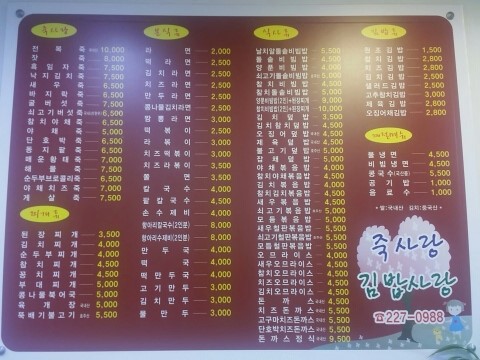 죽사랑
전복죽 10,000
잣죽 8,000
흑임자죽 7,500
낙지김치죽 7,500
새우죽 6,500
바지락죽 6,500
굴버섯죽 7,500
쇠고기버섯죽 6,500
참치야채죽 6,500
야채죽 5,500
단호박죽 6,500
동지팥죽 6,500
매운황태죽 7,500
해물죽 7,500
순두부브로콜리죽 6,500
야채치즈죽 7,000
게살죽 7,500
찌개
된장찌개 3,500
김치찌개 4,000
순두부찌개 4,500
참치찌개 4,500
꽁치찌개 4,500
부대찌개 5,000
콩나물북어국 5,000
육개장 5,000
뚝배기불고기 5,500
분식
라면 2,000
떡라면 2,500
김치라면 2,500
치즈라면 2,500
만두라면 2,500
콩나물김치라면 2,500
짬뽕라면 3,000
떡볶이 2,500
라볶이 3,000
치즈떡볶이 3,000
치즈라볶이 3,500
쫄면 3,500
칼국수 4,000
팥칼국수 4,500
손수제비 4,000
항아리칼국수(2인분) 8,000
항아리수제비(2인분) 8,000
만두국 4,000
떡국 4,000
떡만두국 4,000
고기만두 3,000
김치만두 3,000
물만두 3,000
식사
날치알돌솥비빔밥 5,500
돌솥비빔밥 4,500
양푼비빔밥 4,500
쇠고기돌솥비빔밥 5,500
참치비빔밥 4,500
참치돌솥비빔밥 5,500
김치덮밥 3,500
김치참치덮밥 4,500
오징어덮밥 4,500
제육덮밥 4,500
불고기덮밥 5,000
잡채덮밥 4,500
야채볶음밥 4,000
참치야채볶음밥 4,500
김치볶음밥 4,000
참치김치볶음밥 4,500
새우볶음밥 4,500
쇠고기볶음밥 5,000
모듬볶음밥 5,000
새우철판볶음밥 5,500
쇠고기철판볶음밥 5,500
모듬철판볶음밥 5,500
오므라이스 4,000
새우오므라이스 4,500
참치오므라이스 4,500
치즈오므라이스 4,500
김치오므라이스 4,500
돈까스 4,500
치즈돈까스 5,500
고구마치즈돈까스 5,500
단호박치즈돈까스 5,500
돈까스정식 9,500
김밥
원조김밥 1,500
참치김밥 2,500
치즈김밥 2,500
김치김밥 2,500
샐러드김밥 2,500
고추참치김밥 3,000
제육김밥 2,800
오징어채김밥 2,800
물냉면 4,500
비빔냉면 4,500
콩국수 4,500
공기밥 1,000
음료수 1,000
* 쌀:국내산 김치:중국산 *
죽사랑
김밥사랑
☎227-0988